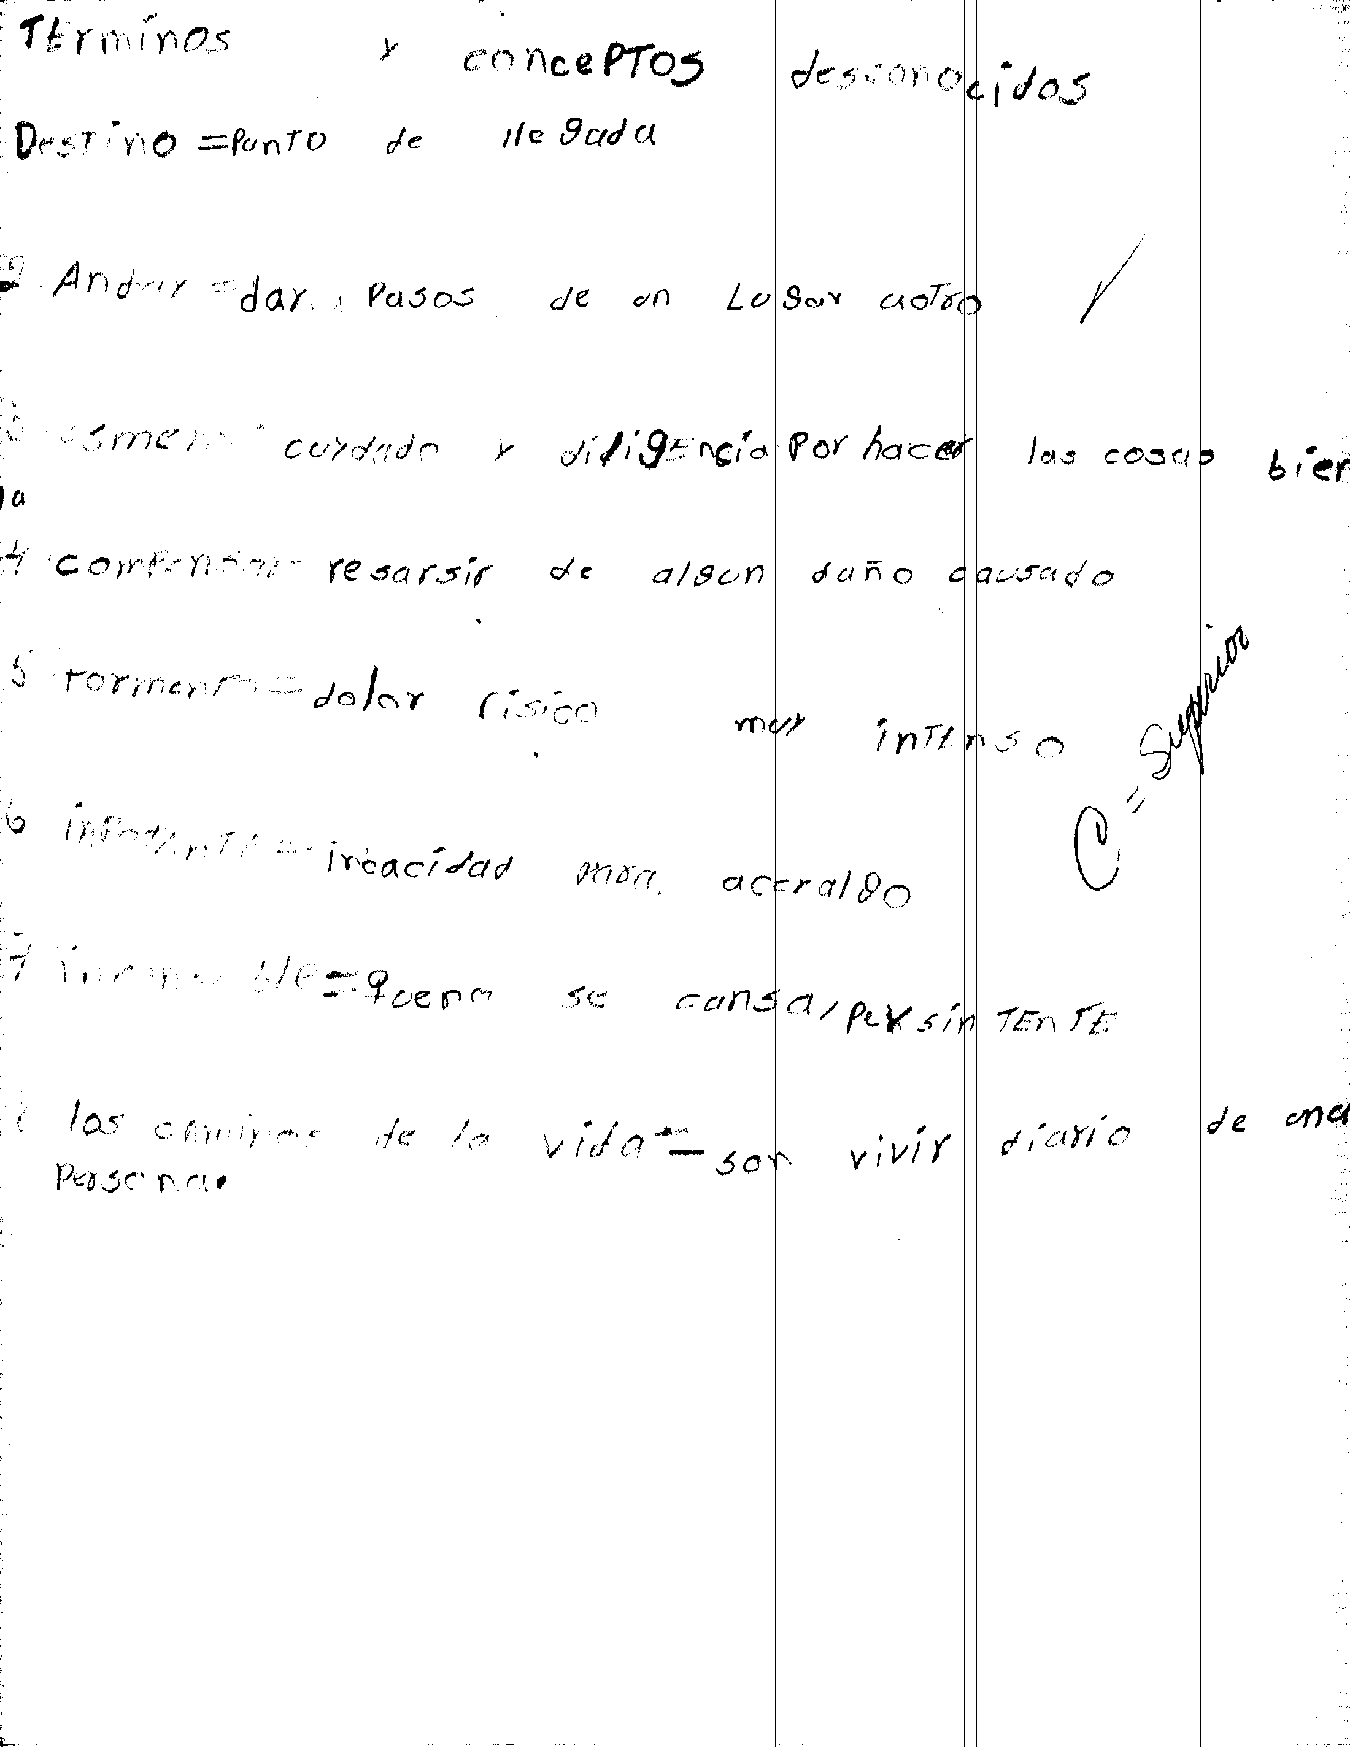 TErmínos y concePTos desconocidos
DesTino = PunTo de llegada
2 Andar = dar Pasos de un Lugar aoTro
3 esmero cuydado y diligEncia Por hacer las cosas bien
4 compensar resarsir de algun daño causado
5 Tormento = dolor físico muy inTEnso
6 = incacidad para acer algo
7 = quena se cansa, PerxsinTEnTE
los caminos de la vida = son vivir diario de una
Persona.
C = Superior